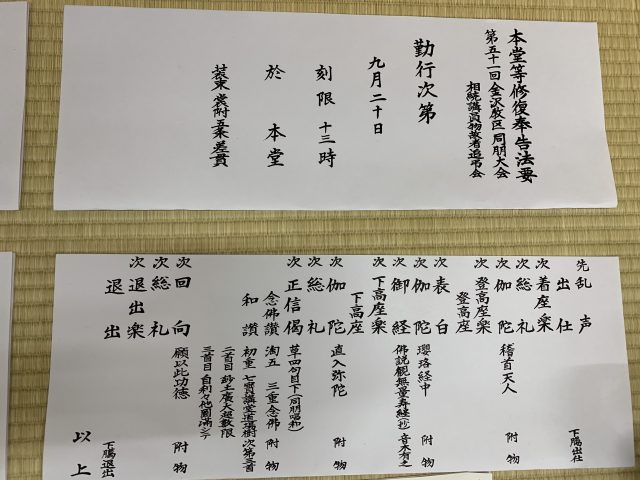 本堂等修復奉告法要
第五十一回金沢教区同朋大会
相続講員物故者追弔会
勤行次第
九月二十日
刻限 十三時
於 本堂
装束 裳附五条差貫
先 乱声
出仕 下臈出仕
次 着座楽
次 総礼
次 伽陀 稽首天人 附物
次 登高座楽
登高座
次 表白
次 伽陀 瓔珞経中 附物
次 御経 佛説観無量寿経(抄) 音木有之
次 下高座楽
下高座
次 伽陀 直入弥陀 附物
次 総礼
次 正信偈 草四句目下(同朋昭和)
念佛讃 淘五 三重念佛 附物
和讃 初重 七宝講堂道場樹 次第三首
二首目 妙土廣大超数限
三首目 自利々他圓満シテ
次 回向 願以此功徳 附物
次 総礼
次 退出楽
退出 下臈退出
以上